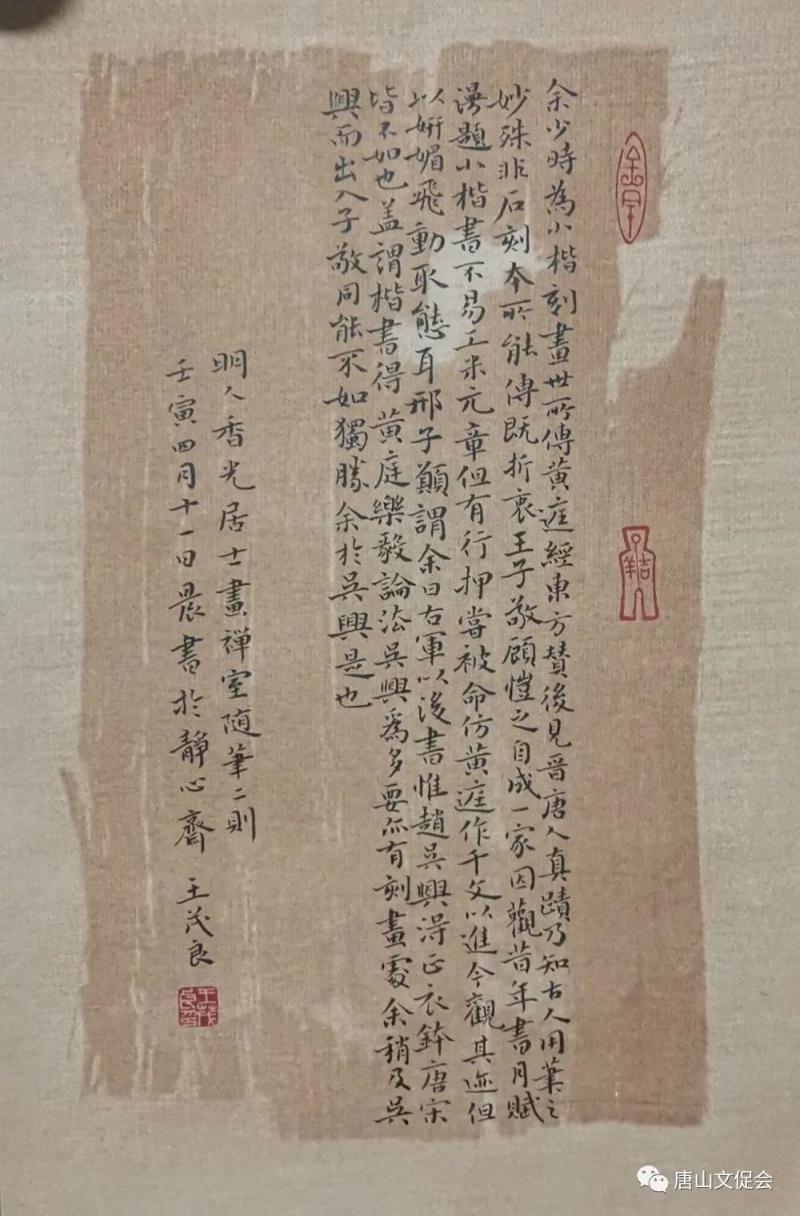 余少時為小楷刻畫世所傳黃庭經東方贊後見晉唐人真蹟乃知古人用筆之
妙殊非石刻本所能傳既折衷王子敬顧愷之自成一家因觀昔年書月賦
漫題小楷書不易工米元章但有行押嘗被命仿黃庭作千文以進今觀其迹但
以妍媚飛動取態耳邢子顛謂余曰右軍以後書惟趙吳興得正衣鉢唐宋
皆不如也盖謂楷書得黃庭樂毅論法吳興為多要亦有刻畫處余稍及吳
興而出入子敬同能不如獨勝余於吳興是也
明人香光居士畫禪室隨筆二則
壬寅四月十一日晨書於靜心齋 王茂良
王茂良印
唐山文促会